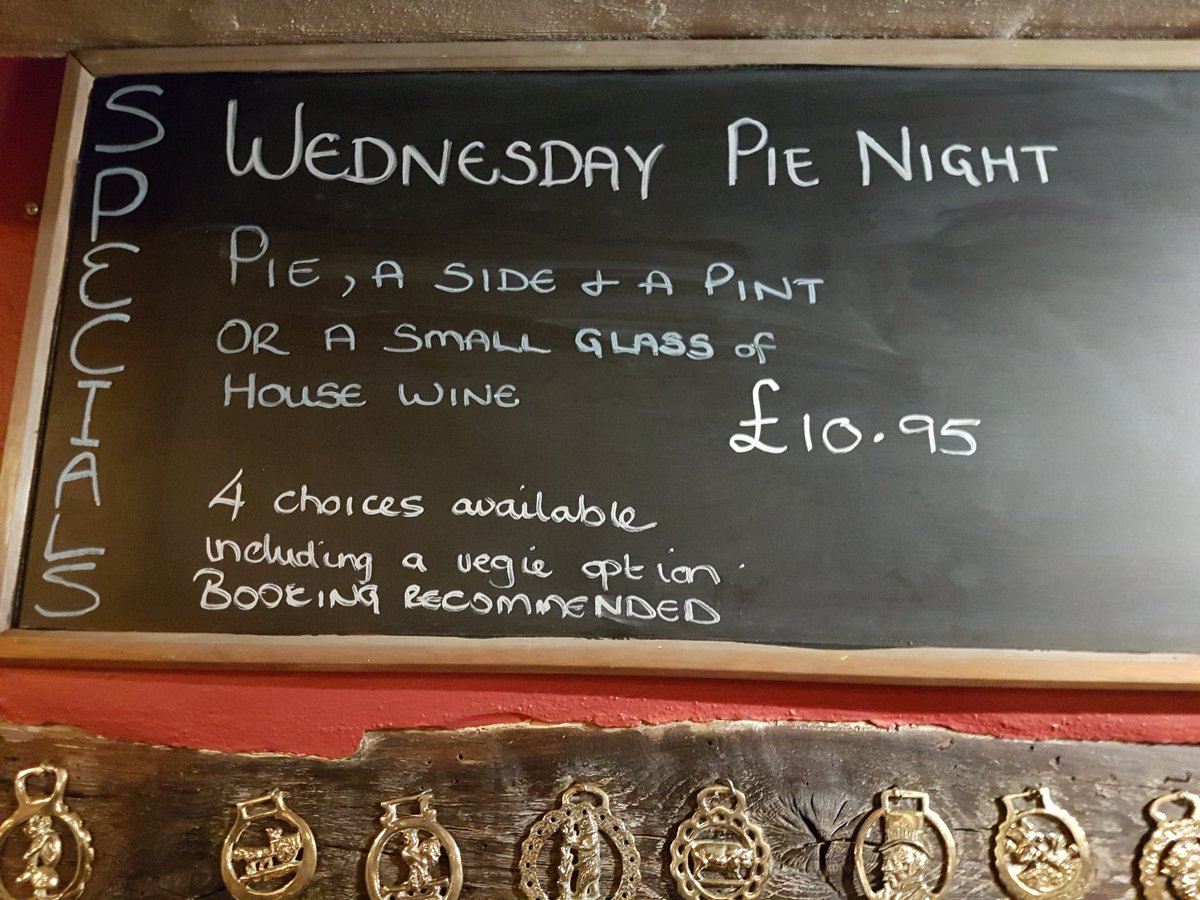 SPECIALS
WEDNESDAY PIE NIGHT
PIE, A SIDE & A PINT
OR A SMALL GLASS of
HOUSE WINE
£10.95
4 choices available
including a vegie option
BOOKING RECOMMENDED